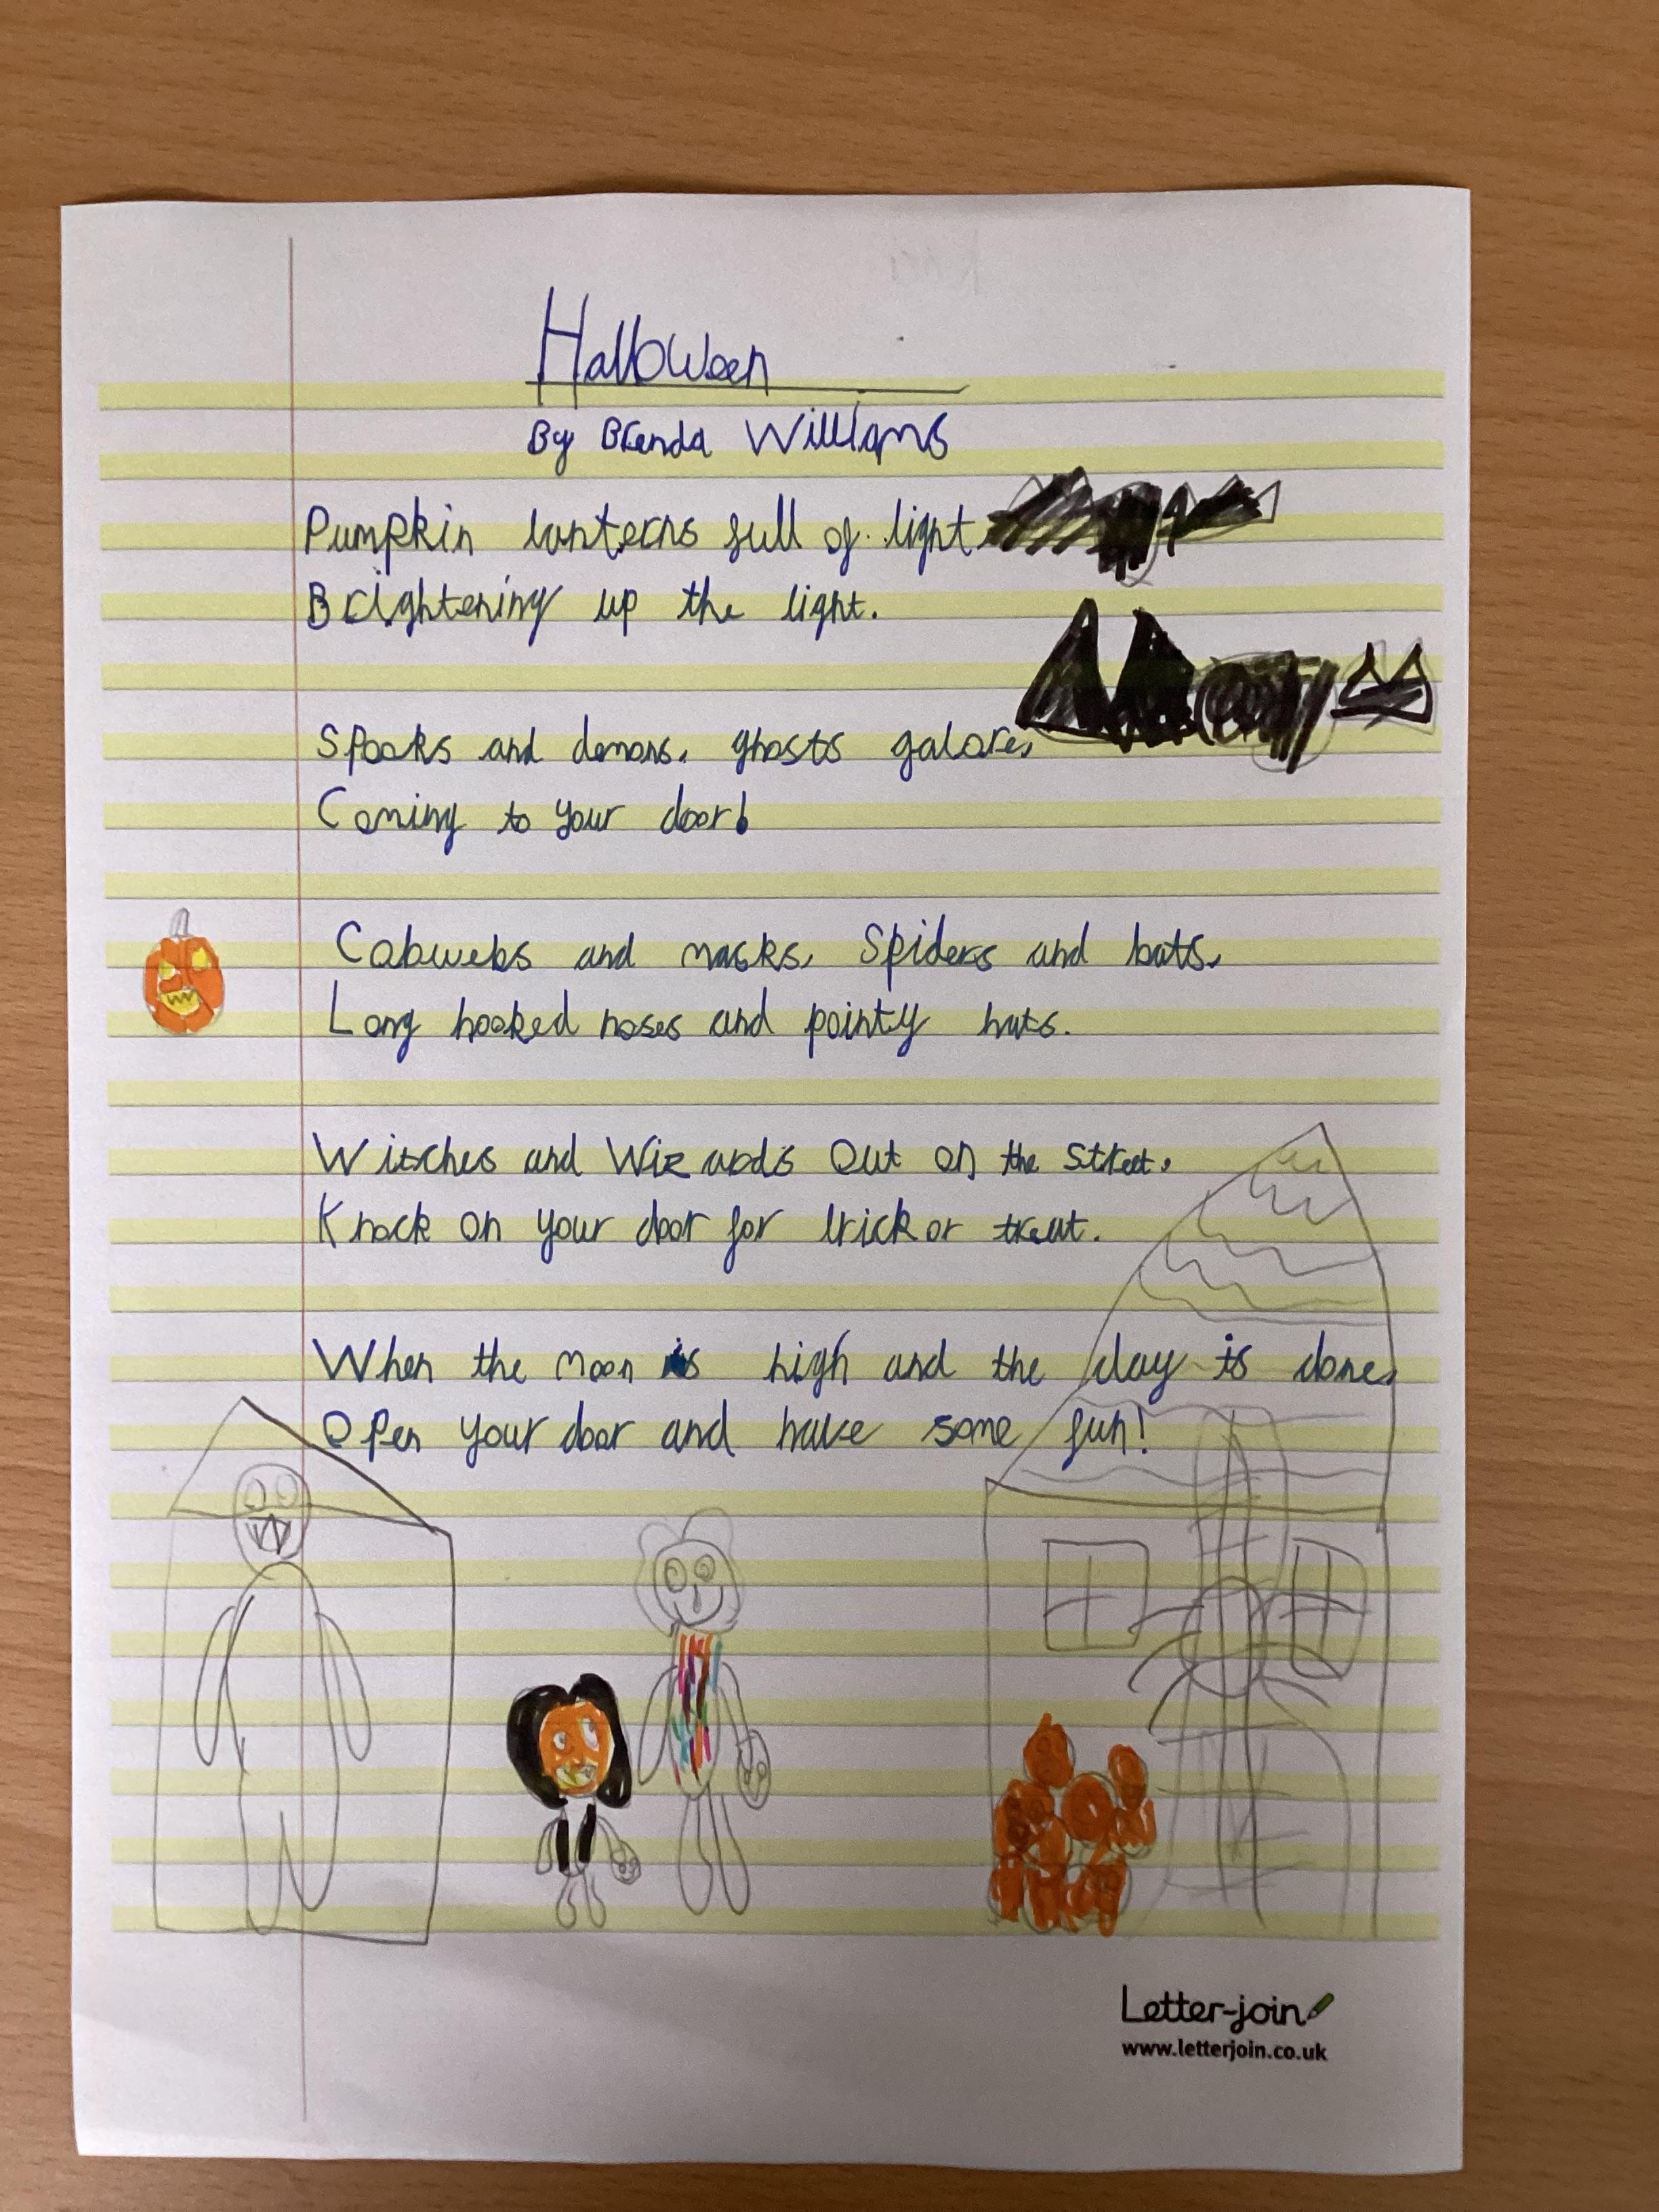 Halloween
By Brenda Williams
Pumpkin lanterns full of light
Brightening up the light.
Spooks and demons, ghosts galore,
Coming to your door!
Cobwebs and masks, Spiders and bats,
Long hooked noses and pointy hats.
Witches and Wizards Out on the Street,
Knock on your door for trick or treat.
When the moon is high and the day is done,
Open your door and have some fun!
Letter-join
www.letterjoin.co.uk